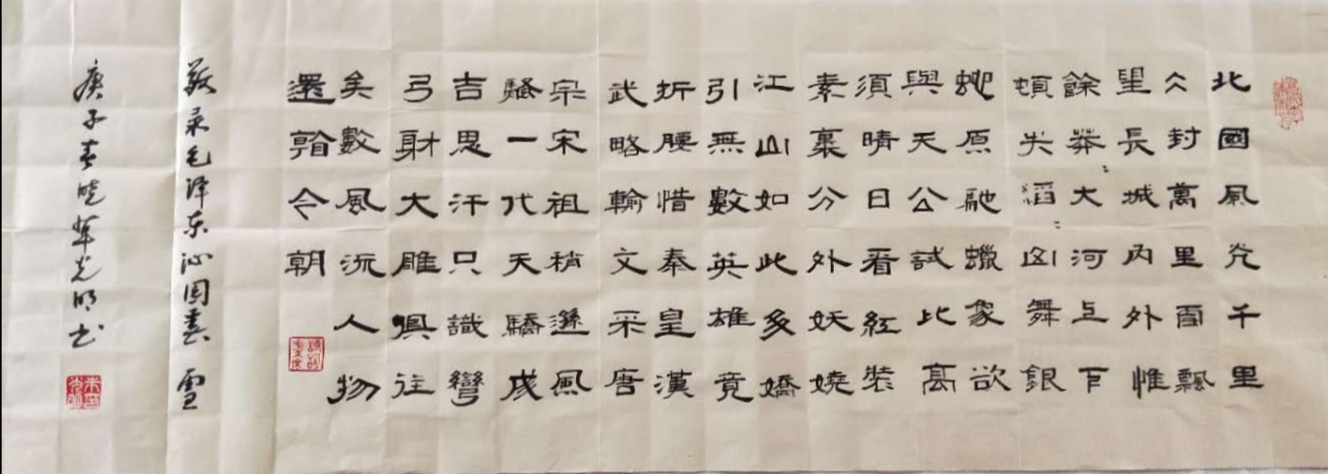 北國風光千里
仌封萬里雪飄
望長城內外惟
餘莽〻大河上下
頓失滔〻山舞銀
蛇原馳蠟象欲
與天公試比高
須晴日看紅裝
素裹分外妖嬈
江山如此多嬌
引無數英雄竟
折腰惜秦皇漢
武略輸文采唐
宗宋祖稍遜風
騷一代天驕成
吉思汗只識彎
弓射大雕俱往
矣數風流人物
還看今朝
敬录毛泽东沁园春 雪
庚子春晓光明书